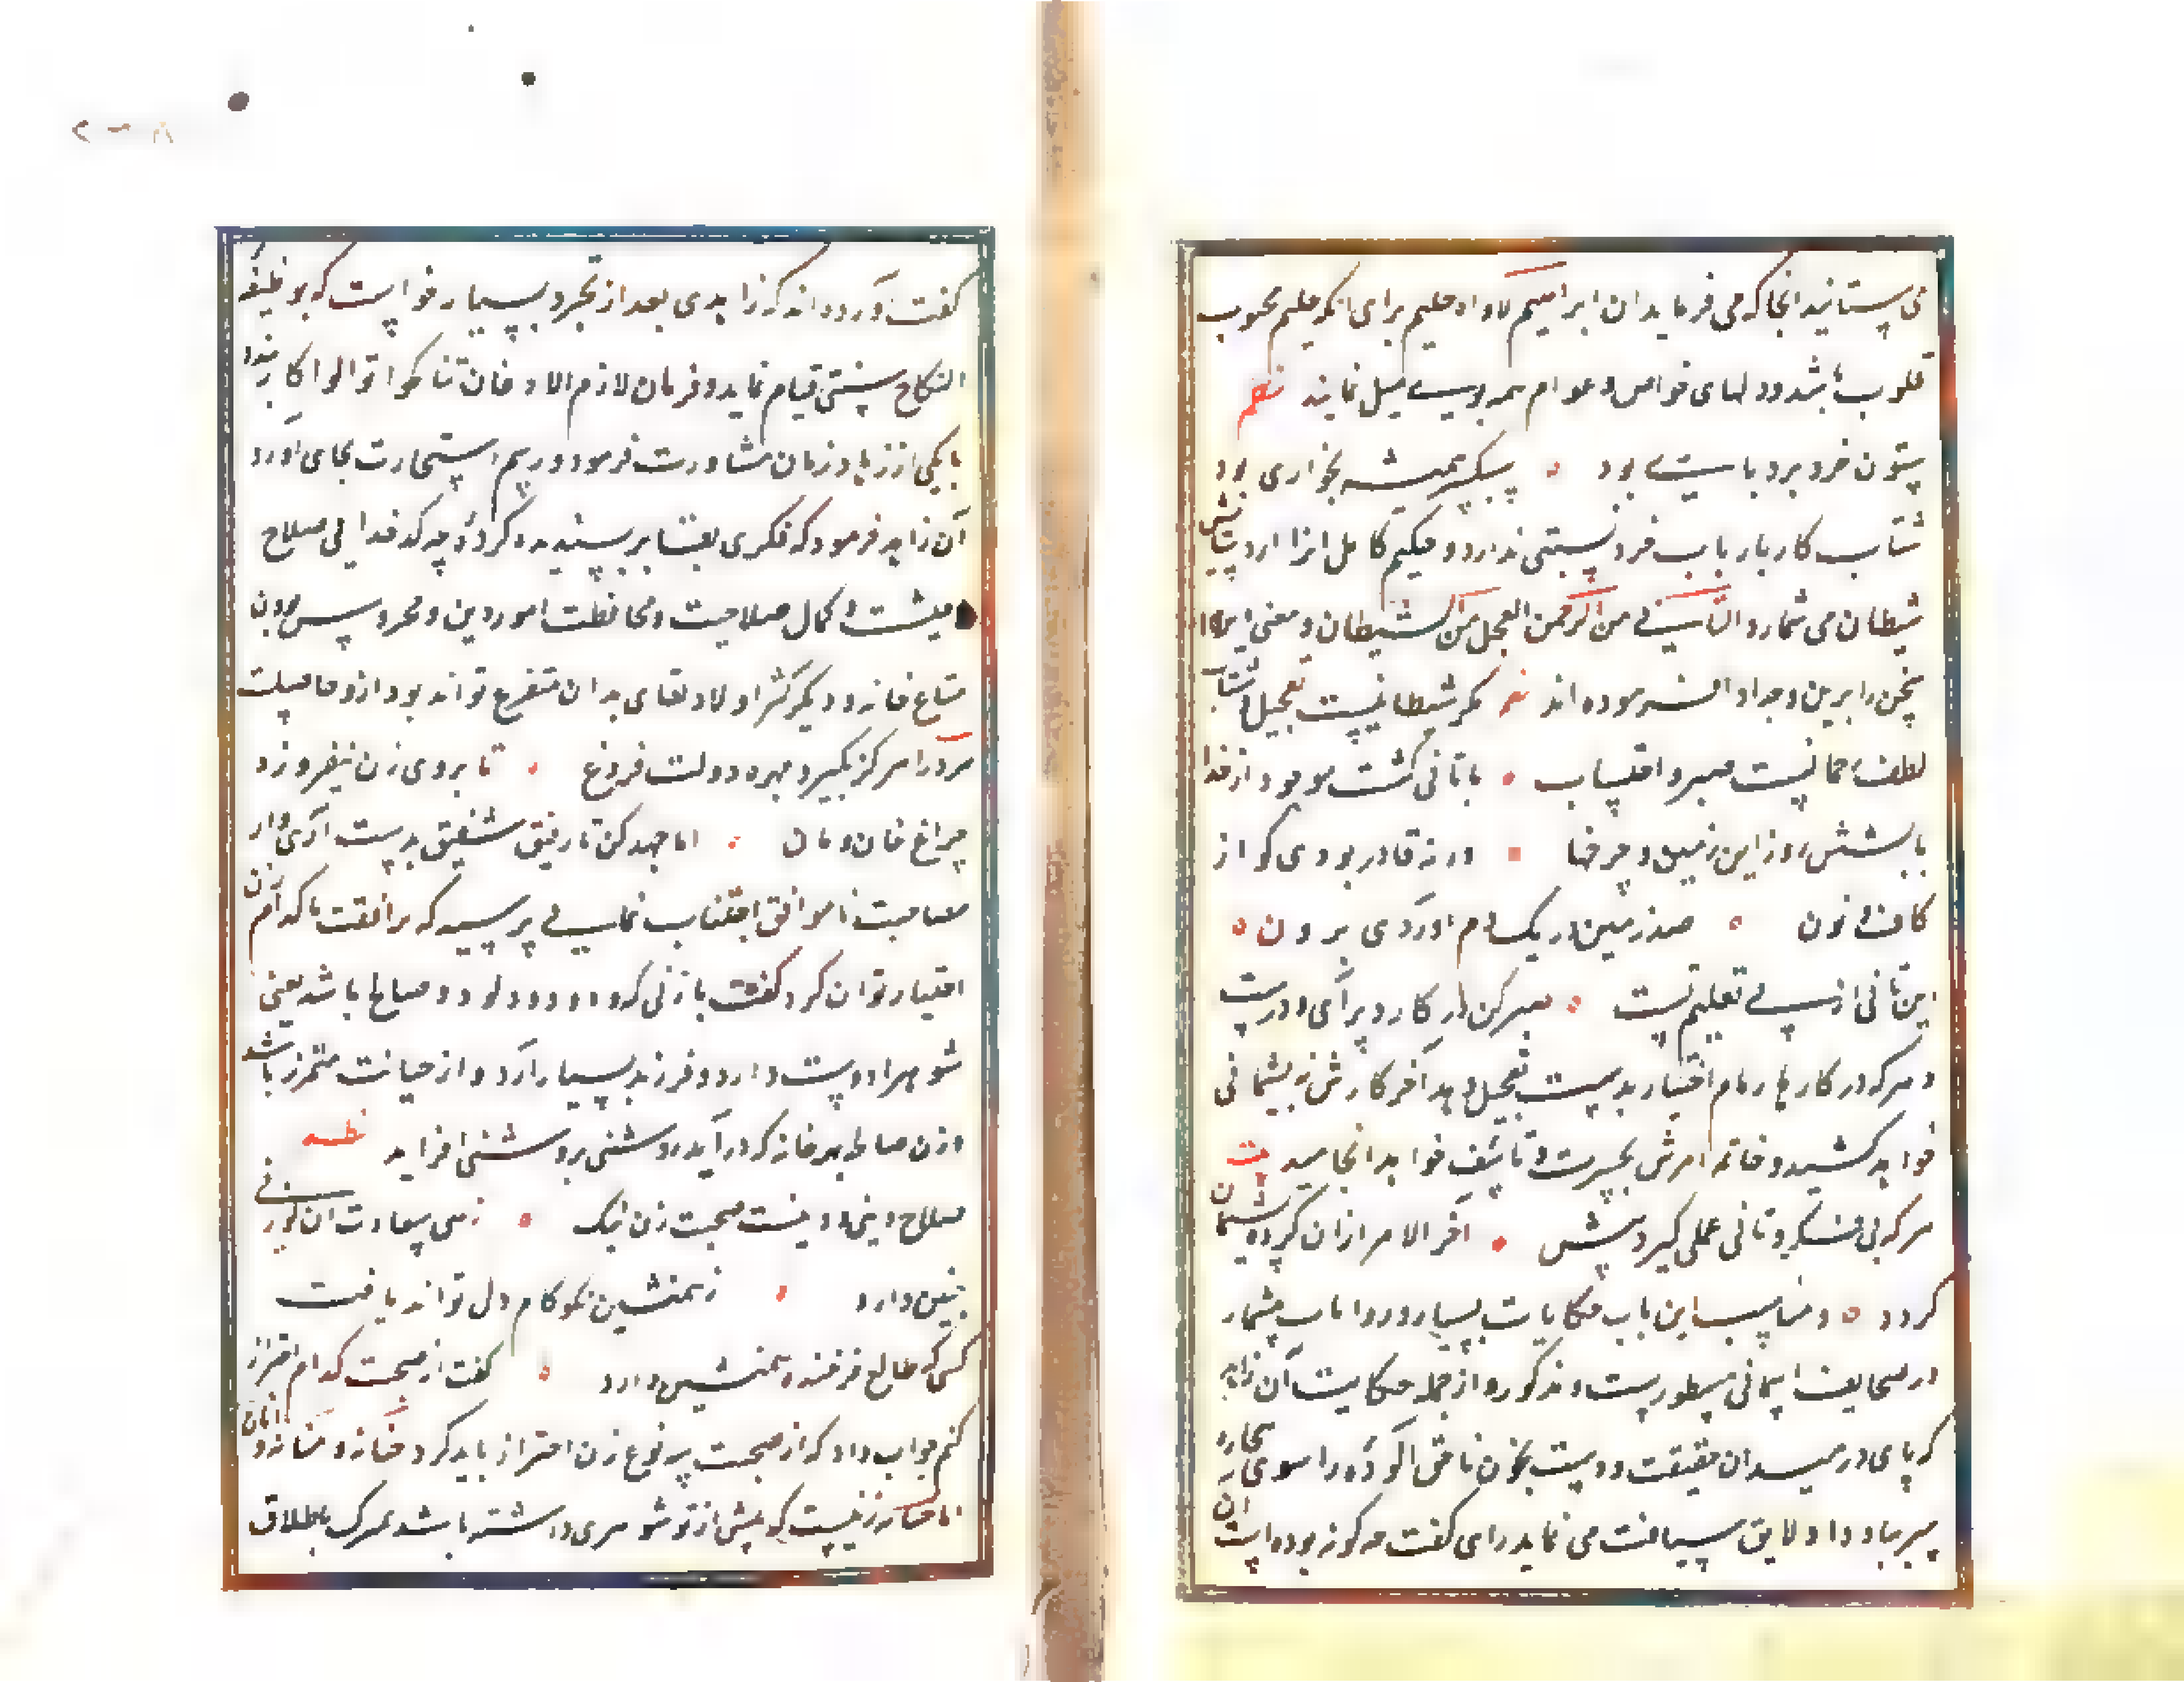 می ستاند انجا که می فرماید ان ابراهیم لاواه حلیم برای انکه حلیم محبوب
قلوب باشد و دلهای خواص و عوام همه بویسے میل نمایند نظم
ستون خرد بردباری بود • سبکسر همیشه بخواری بود
شتاب کار بار باب خرد نسبتی ندارد و حکیم کامل انرا از
شیطان می شمارد التانی من الرحمن العجل من الشیطان و معنی این
سخن را برین وجه ادا فرموده اند شعر مکر شیطانیست تعجیل و شتاب
لطف رحمانیست صبر و احتساب • باتانی کشت موجود از خدا
تا بشش روز این زمین و چرخها • ورنه قادر بودی کو از
کاف و نون • صد زمین در یک دم اوردی برون •
این تانی از پے تعلیم تست • صبر کن در کار و دیر آی و درست
و هرکه در کارها زمام اختیار بدست تعجیل دهد آخر کارش به پشیمانی
خواهد کشید و خاتمه امرش بحسرت و تاسف خواهد انجامید بیت
هرکه بی فکر و تانی عملی کیرد پیش • آخر الامر ازان کرده پشیمان
کردد • و مناسب این باب حکایات بسیار و روایات بیشمار
در صحایف اسمانی مسطورست و مذکور و از جمله حکایت آن زاهد
که پای در میدان حقیقت و دست بخون ناحق الوده راسوی بیچاره
ببر باد داد لایق سیاقت می نماید رای کفت چه کونه بوده است ان
کفت آورده اند که زاهدی بعد از تجرد بسیار خواست که بوظیفه
النکاح سنتی قیام نماید و فرمان لازم الاذعان تناکحوا توالدوا کار بندد
با یکی از زهاد زمان مشاورت فرمود و رسم استخارت بجای آورد
آن زاهد فرمود که فکری بغایت پسندیده کردۀ چه کدخدایی صلاح
معیشت و کمال صلاحیت و محافظت امور دین و محروس بودن
متاع خانه و دیکر کثرا ولاد بقای بدان متفرع تواند بود ازو حاصلست
مرد را هرکز نکیرد چهره دولت فروغ • تا بروی زن نیفروزد
چراغ خان و مان • اما جهد کن تا رفیق شفیق بدست آری و از
مصاحبت ناموافق اجتناب نمایے پرسید که مرافقت با کدام زن
اختیار توان کرد کفت با زنی که و دود و ولود و صالحه باشد یعنی
شوهر را دوست دارد و فرزند بسیار آرد و از خیانت متحرز باشد
و زن صالحه بهر خانه که درآید روشنی بروشنی افزاید نظم
صلاح دینی و دنیاست صحبت زن نیک • زهی سعادت ان کو زنی
چنین دارد • ز همنشین نکو کام دل تواند یافت
کسی که طالع فرخنده همنشین دارد • کفت از صحبت کدام احتراز
کنم جواب داد که از صحبت سه نوع زن احتراز باید کرد حنانه و منانه و انانه
اما حنانه زنیست که پیش از تو شوهری داشته باشد بمرک یا طلاق